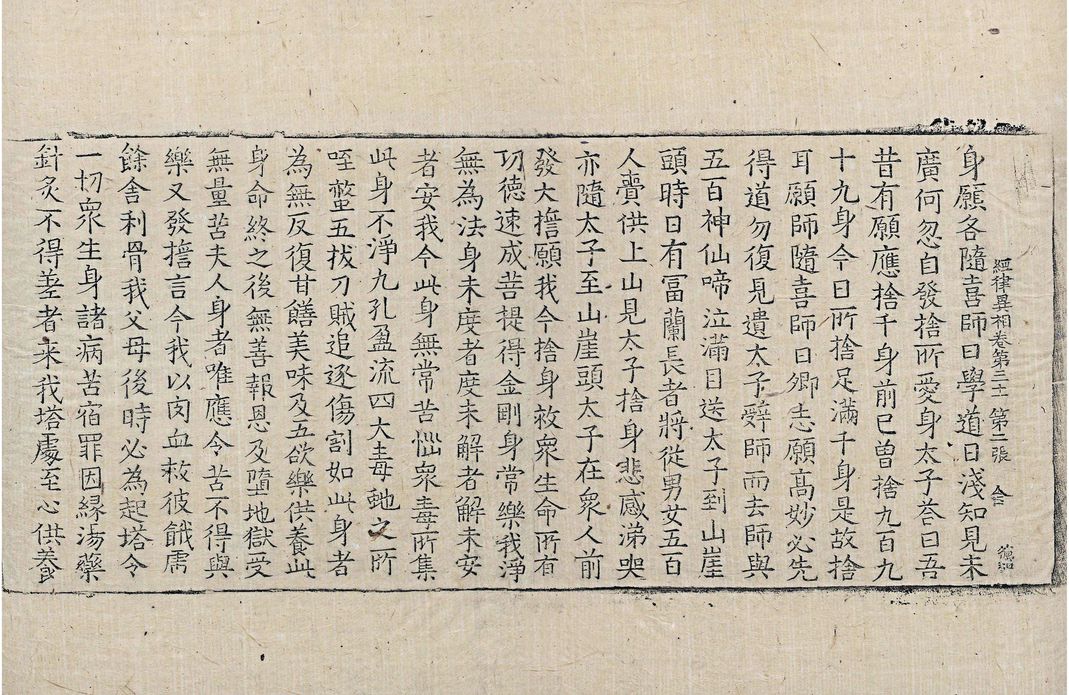 經律異相卷第三十一 第二張 合
身願各隨喜師曰學道日淺知見未
廣何忽自發捨所愛身太子荅曰吾
昔有願應捨千身前已曾捨九百九
十九身今日所捨足滿千身是故捨
耳願師隨喜師曰卿志願高妙必先
得道勿復見遺太子辝師而去師與
五百神仙啼泣滿目送太子到山崖
頭時日有冨蘭長者將從男女五百
人賷供上山見太子捨身悲感涕哭
亦隨太子至山崖頭太子在衆人前
發大誓願我今捨身救衆生命所有
功德速成菩提得金剛身常樂我淨
無為法身未度者度未解者解未安
者安我今此身無常苦惱衆毒所集
此身不淨九孔盈流四大毒虵之所
咥螫五拔刀賊追逐傷割如此身者
為無反復甘饍美味及五欲樂供養此
身命終之後無善報恩及墮地獄受
無量苦夫人身者唯應令苦不得與
樂又發誓言今我以肉血救彼餓虎
餘舍利骨我父母後時必為起塔令
一切衆生身諸病苦宿罪因緣湯藥
針灸不得差者来我塔處至心供養